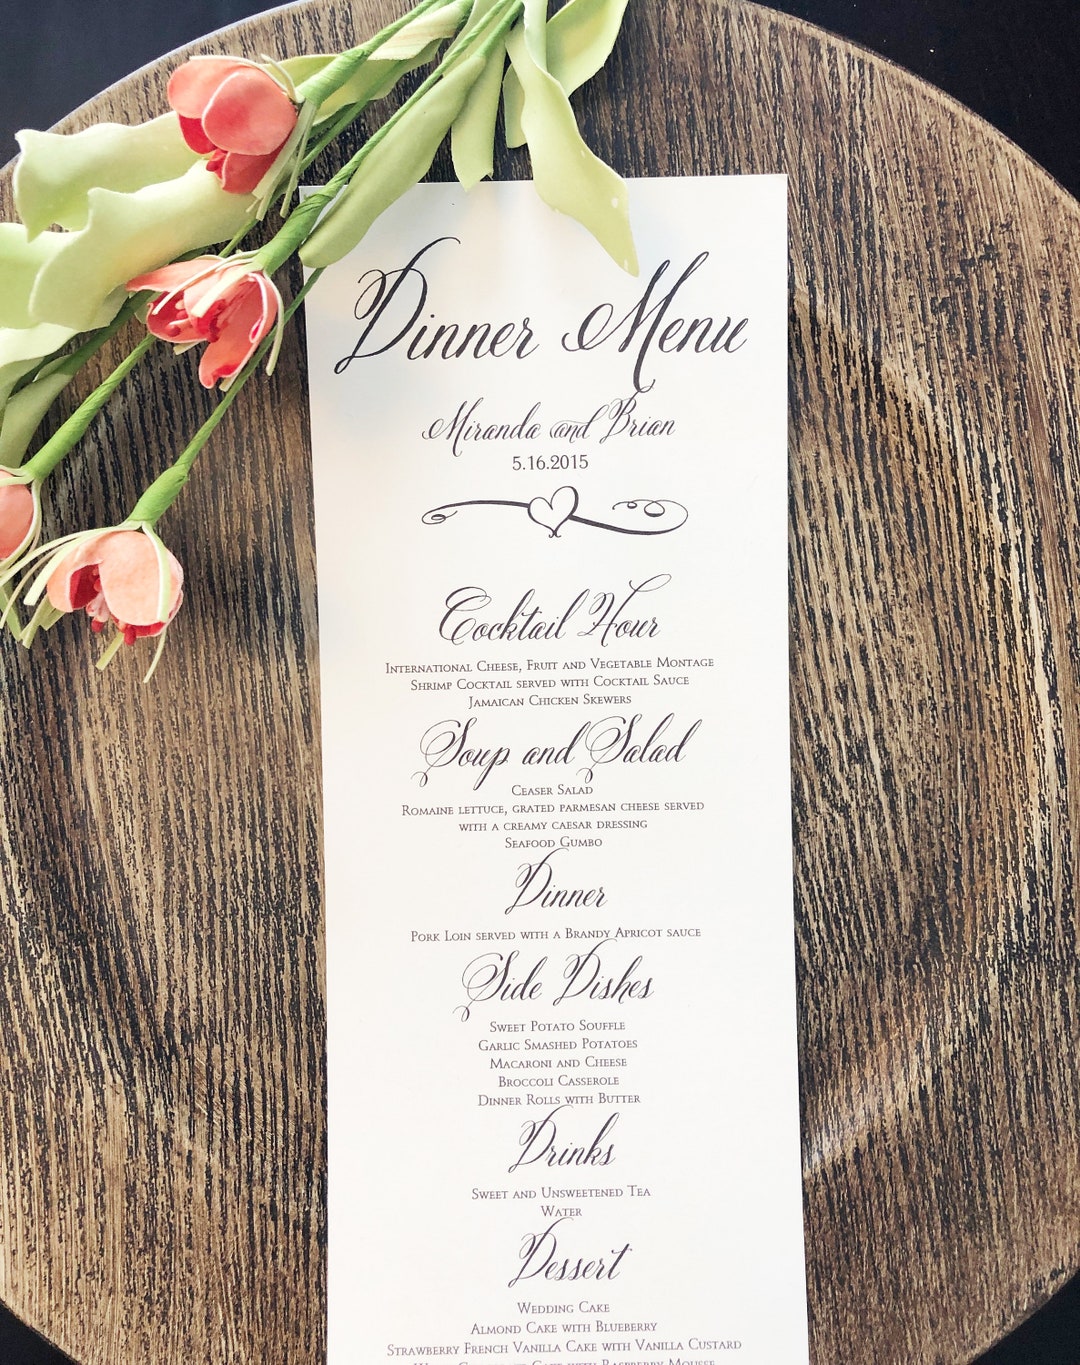 Dinner Menu
Miranda and Brian
5.16.2015
Cocktail Hour
International Cheese, Fruit and Vegetable Montage
Shrimp Cocktail served with Cocktail Sauce
Jamaican Chicken Skewers
Soup and Salad
Ceaser Salad
Romaine lettuce, grated parmesan cheese served
with a creamy caesar dressing
Seafood Gumbo
Dinner
Pork Loin served with a Brandy Apricot sauce
Side Dishes
Sweet Potato Souffle
Garlic Smashed Potatoes
Macaroni and Cheese
Broccoli Casserole
Dinner Rolls with Butter
Drinks
Sweet and Unsweetened Tea
Water
Dessert
Wedding Cake
Almond Cake with Blueberry
Strawberry French Vanilla Cake with Vanilla Custard
Cake with Raspberry Mousse